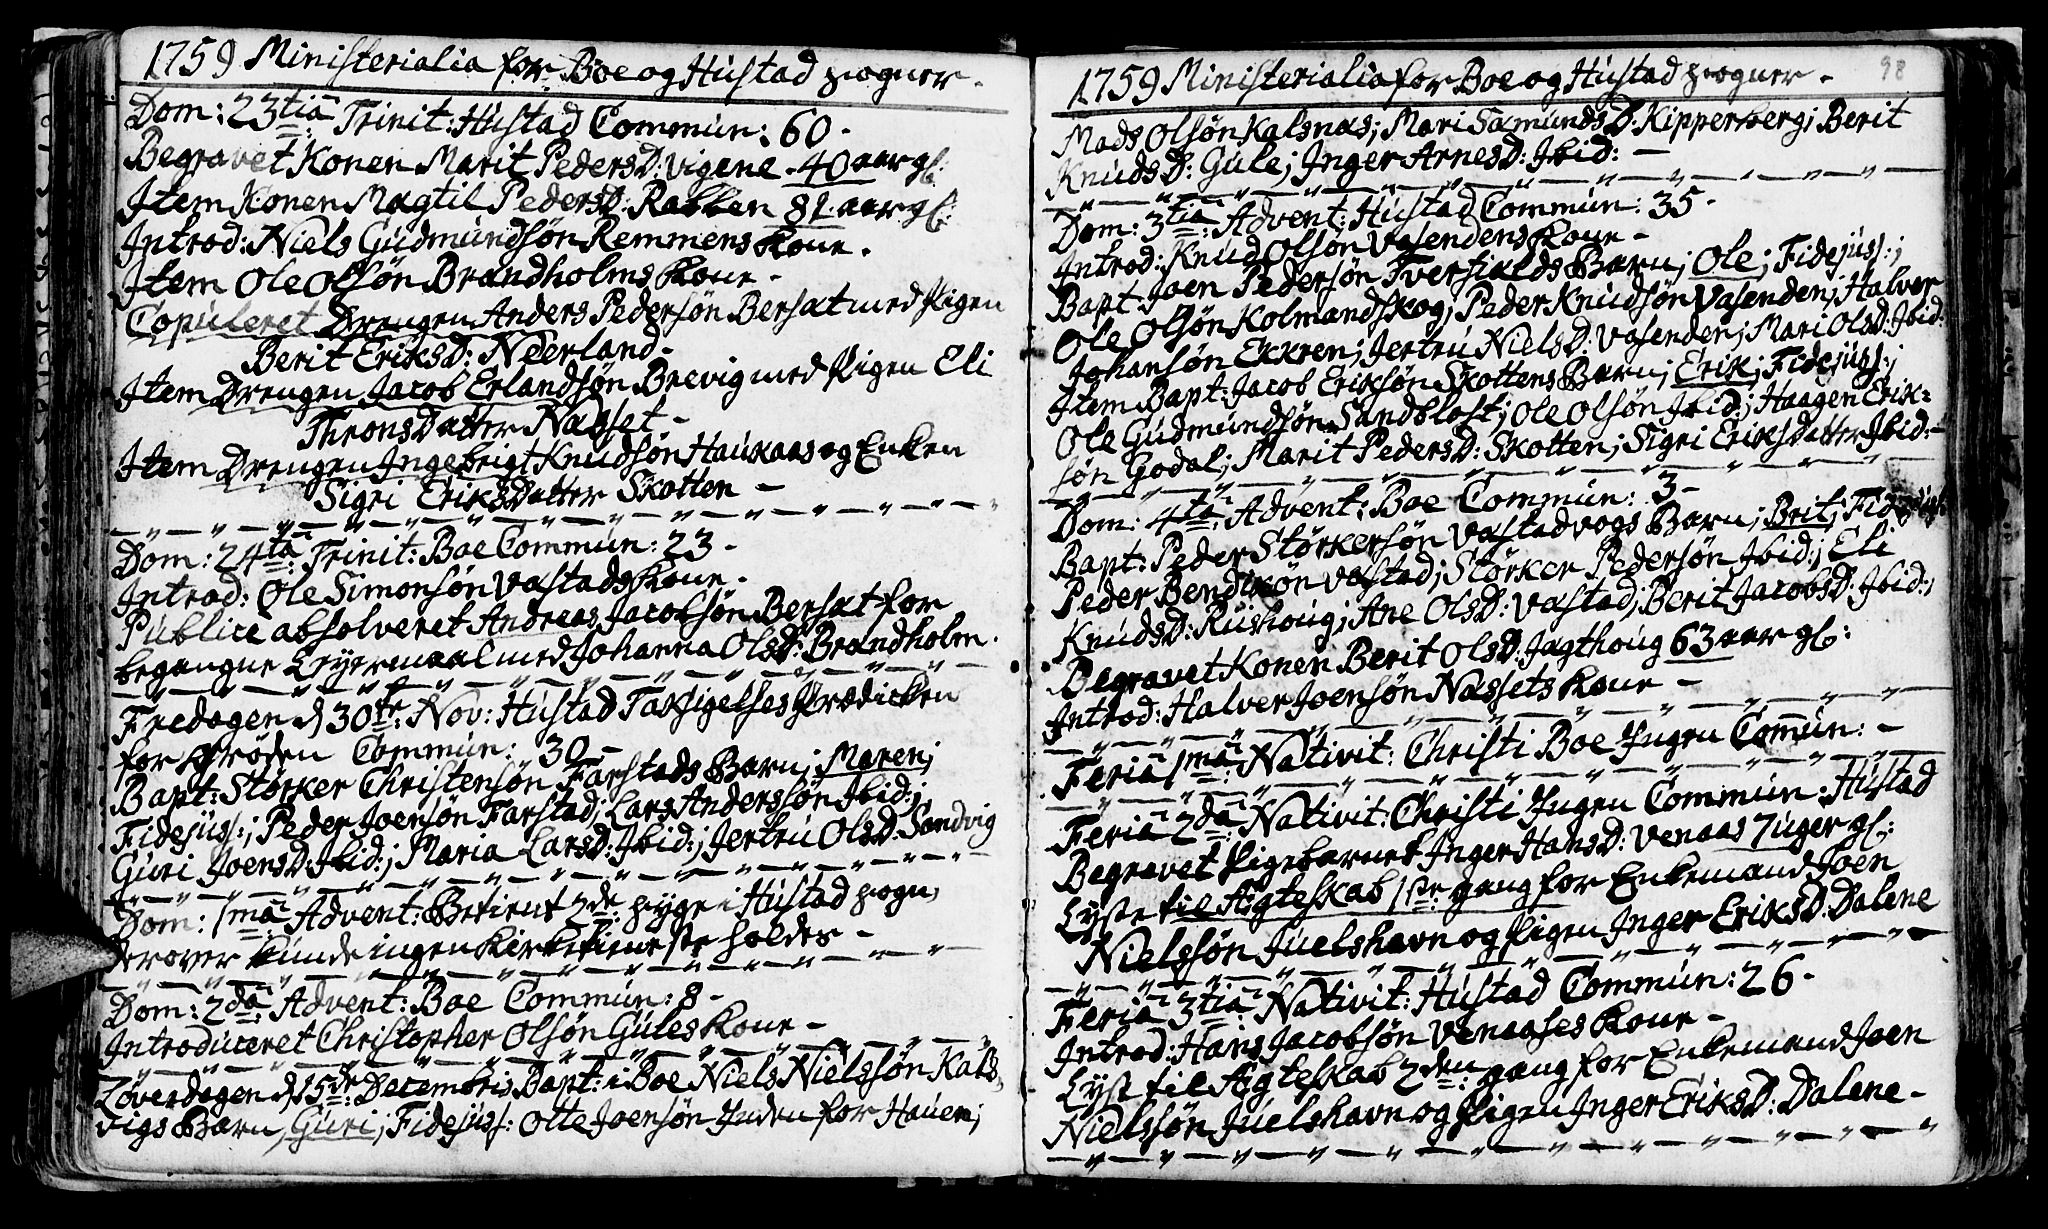 1759 Ministerialia for Boe og Hustad sogner -
Dom: 23tia Trinit: Hustad Commun: 60 -
Begravet Konen Marit Pedersd: Vigene - 40 aar gl:
Item Konen Magtil Pedersd: Rabben 81 aar gl:
Introd: Niels Gudmundsøn Remmens Kone .
Item Ole Olsøn Brandholms Kone -
Copuleret Drengen Anders Pedersøn Bersæt med Pigen
Berit Eriksd: Neerland -
Item Drengen Jacob Erlandsøn Brevig med Pigen Eli
Thronsdatter Nasset -
Item Drengen Ingebrigt Knudsøn Haukaas og Enken
Sigri Eriksdatter Skotten -
Dom: 24ta Trinit: Boe Commun: 23 -
Introd: Ole Simonsøn Vastads Kone -
Publice absolveret Andreas Jacobsøn Bersæt for
begangne Leyermaal med Johanna Olsd: Brandholm .
Fredagen d 30te: Nov: Hustad Taksigelses Prædicken
for Grøden Commun: 30 -
Bapt: Størker Christensøn Farstads Barn; Maren;
Fidejuss:; Peder Joensøn Farstad; Lars Anderssøn Ibid:;
Guri Joensd: Ibid:; Maria Larsd: Ibid:; Jertru Olsd: Sandvig
Dom: 1ma Advent: Betient 2de syge i Hustad sogn,
derover kunde ingen Kirketieneste holdes -
Dom: 2da Advent: Boe Commun: 8 -
Introduceret Christopher Olsøn Gules Kone -
Løverdagen d 15de: Decembris Bapt: i Boe Niels Nielssøn Kals-
vigs Barn, Guri; Fidejuss: Otte Joensøn Inden for Hauen;
1759 Ministerialia for Boe og Hustad sogner - 98
Mads Olsøn Kalsnas; Mari Samundsd: Kipperberg; Berit
Knudsd: Gule; Inger Arnesd: Ibid: -
Dom: 3tia: Advent: Hustad Commun: 35 -
Introd: Knud Olsøn Vasendens Kone -
Bapt: Joen Pedersøn Tverfialds Barn; Ole; Fidejuss:;
Ole Olsøn Kolmandskog; Peder Knudsøn Vasenden; Halver
Johansøn Ekkren; Jertru Nielsd: Vasenden; Mari Olsd: Ibid:
Item Bapt: Jacob Eriksøn Skottens Barn; Erik; Fidejuss:;
Ole Gudmundsøn Sandblost; Ole Olsøn Ibid:; Haagen Erik=
søn Godal; Marit Pedersd: Skotten; Sigri Eriksdatter Ibid: -
Dom: 4ta Advent: Boe Commun: 3 -
Bapt: Peder Størkersøn Vastadvogs Barn; Brit;
Peder Bendtsøn Vastad; Størker Pedersøn Ibid:; Eli
Knudsd: Rushoug; Ane Olsd: Vastad; Berit Jacobsd: Ibid:,
Begravet Konen Berit Olsd: Jagthoug 63 aar gl:
Introd: Halver Joensøn Nassets Kone -
Feria 1ma: Nativit: Christi Boe Ingen Comun: -
Feria 2da: Nativit: Christi Ingen Commun: Hustad
Begravet Pigebarnet Inger Hansd: Venaas 7 uger gl:
Lyste til Ægteskab 1ste: gang for Enkemand Joen
Nielssøn Juelshavn og Pigen Inger Eriksd: Dalene
Feria 3tia: Nativit: Hustad Commun: 26 -
Introd: Hans Jacobsøn Venaases Kone -
Lyst til Ægteskab 2den: gang for Enkemand Joen
Nielssøn Juelshavn og Pigen Inger Eriksd: Dalene -